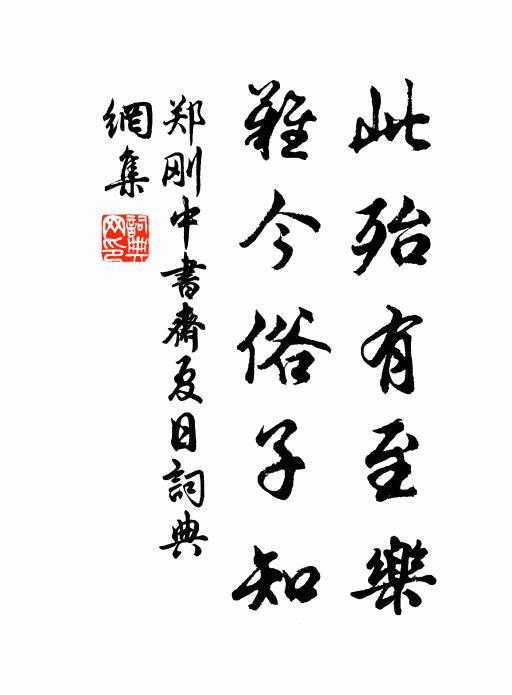 此殆有至樂
難令俗子知
郑刚中書齋夏日詞典
網集
詞典网印